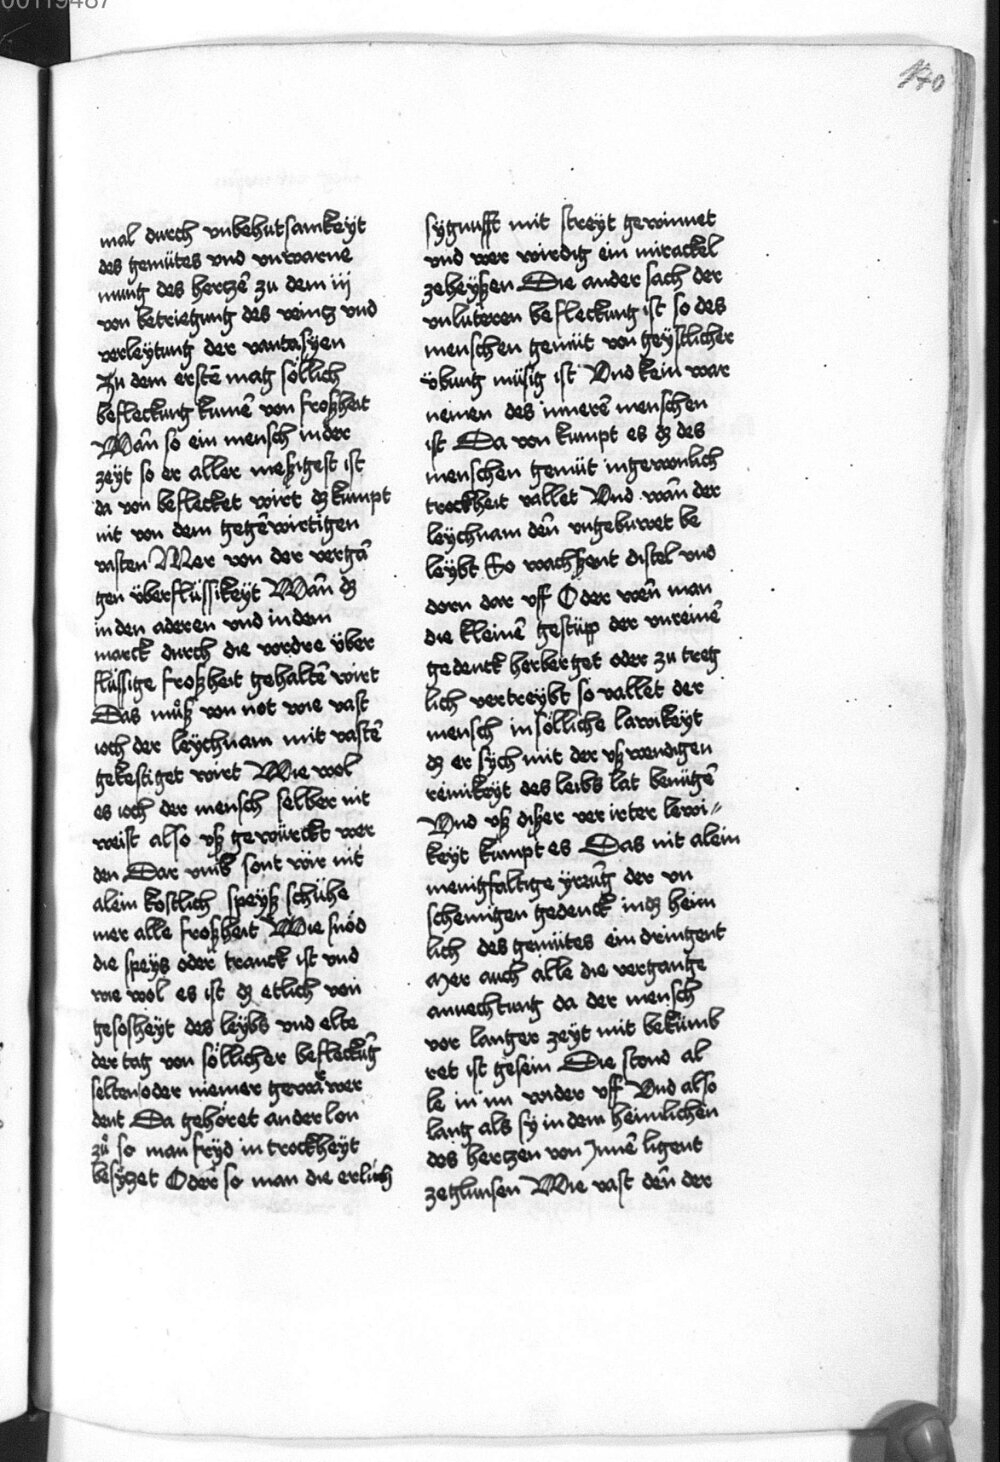 00119487
140
mal durch vnbehutsamkeÿt
des gemütes vnd vnwarne
mung des hertzē zu dem iij
von betriegung des veintz vnd
verleÿtung der vantasÿen
Zu dem erstē mag söllich
befleckung kumē von froßheit
Wān so ein mensch in der
zeÿt so er aller meßigest ist
da von beflecket wirt dz kumpt
nit von dem gegēwirtigen
vasten Mer von der vergā
gen überflüssikeÿt Wān dz
in den aderen vnd in dem
marck durch die vordre über
flüssige froßheit gehaltē wirt
Das můß von not wie vast
ioch der leÿchnam mit vastē
gekestiget wirt Wie wol
es ioch der mensch selber nit
weist also vß gewürckt wer
den Dar vmb sont wir nit
alein kostlich speÿß schühe
mer alle froßheit Wie snöd
die speÿs oder tranck ist vnd
wie wol es ist dz etlich von
gesosheÿt des leÿbs vnd elte
der tag von söllicher befleckūg
selten oder niemer gewārwer
dent Da gehöret ander lon
zů so man frÿd in trockheÿt
besÿzet Oder so man die erlich
sÿgnufft mit streÿt gewinnet
vnd wer wirdig ein mirackel
zeheÿßen Die ander sach der
vnluteren befleckung ist so des
menschen gemüt von geÿstlicher
übung müsig ist Vnd kein war
neinen des innerē menschen
ist Da von kumpt es dz des
menschen gemüt in gewonlich
trockheit vallet Vnd wān der
leÿchnam dēn vngebuwet be
leÿbt So wachßent distel vnd
dorn dar vff Oder wēn man
die kleinē gestüpp der vnreinē
gedenck herberget oder zu treg
lich vertreÿbt so vallet der
mensch in sölliche lawikeÿt
dz er sÿch mit der vßwendigen
reinikeÿt des leibs lat benügē
Vnd vß dißer verirter lewi
keÿt kumpt es Das nit alein
menigfaltige ÿrrūg der vn
schemigen gedenck in dz heim
lich des gemütes ein dringent
Mer auch alle die vergange
anvechtung da der mensch
vor langer zeÿt mit bekümb
ret ist gesein Die stond al
le in im wider vff Vnd also
lang als sÿ in dem heimlichen
des hertzen von Innē ligent
Wie vast dēn der